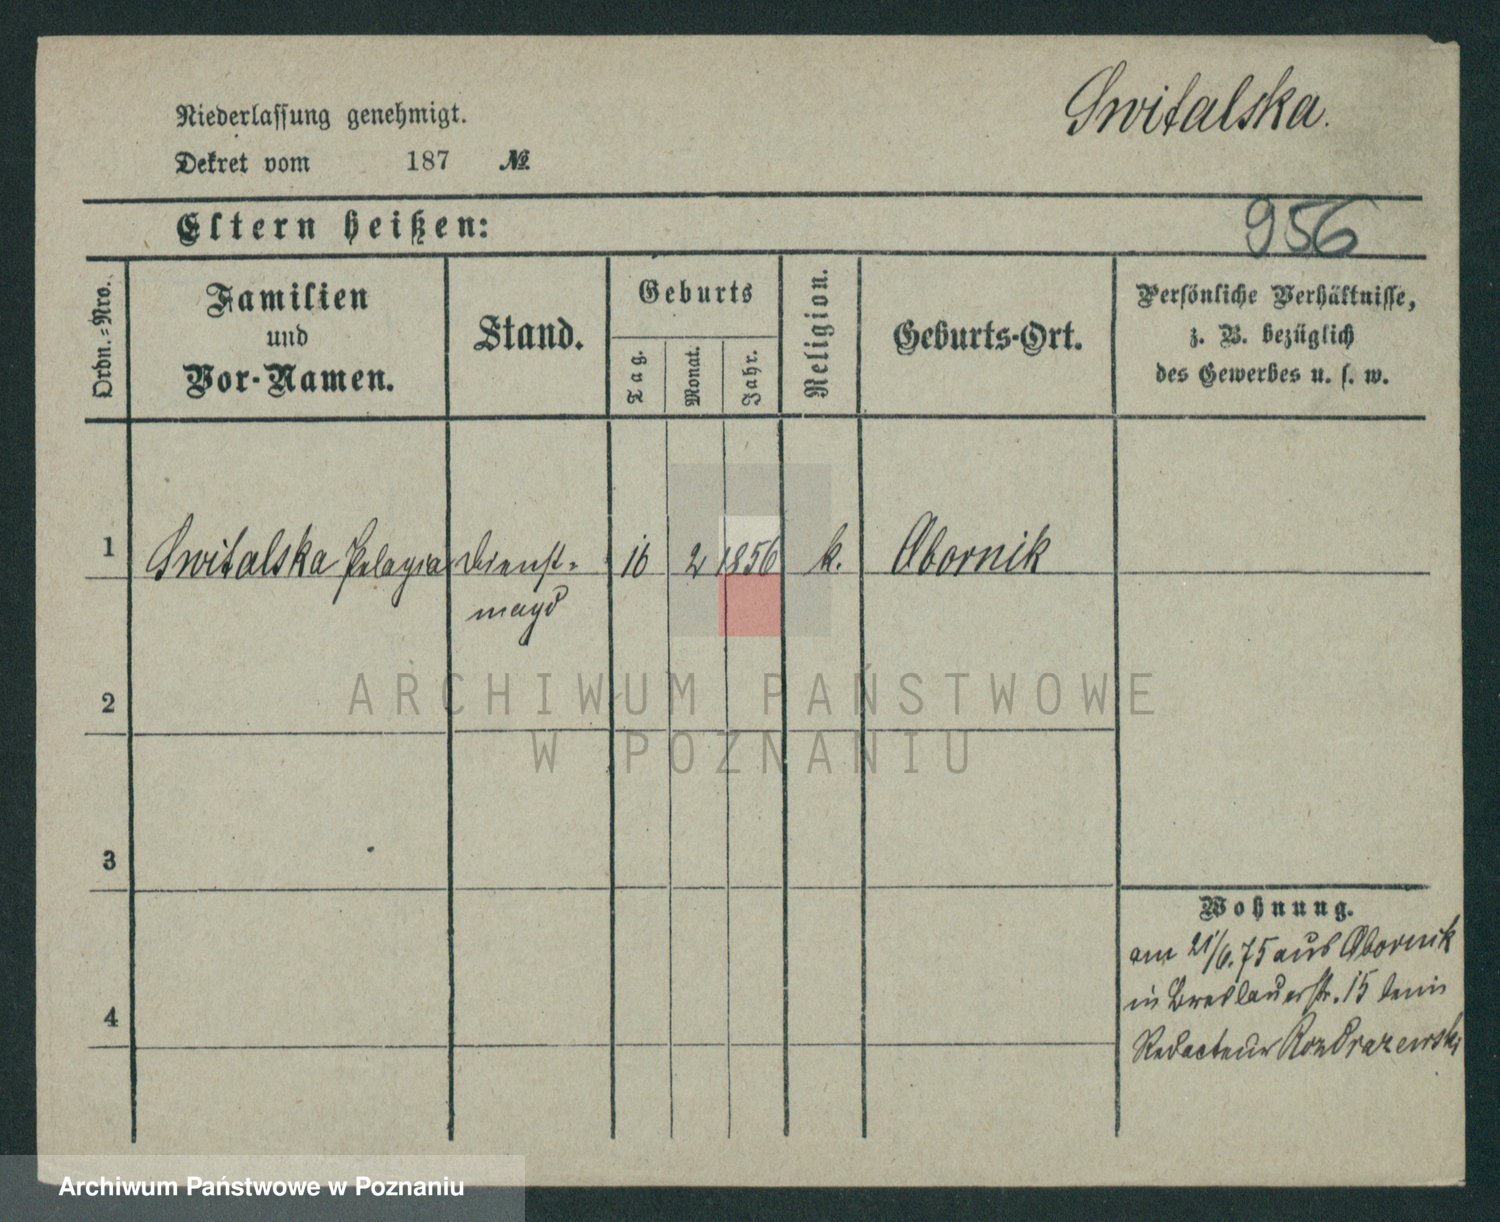 Switalska.
Niederlassung genehmigt.
Dekret vom 187 №
Eltern heißen:
956
Ordn.-Nro.
Familien
und
Vor-Namen.
Stand.
Geburts
Tag.
Monat.
Jahr.
Religion.
Geburts-Ort.
Persönliche Verhältnisse,
z. B. bezüglich
des Gewerbes u. s. w.
1 Switalska Pelagia Dienst- 16 2 1856 k. Obornik
magd
2
3
4
Wohnung.
am 21/6.75 aus Obornik
in Breslauerstr. 15 beim
Redacteur Rozdrazewski
ARCHIWUM PAŃSTWOWE
W POZNANIU
Archiwum Państwowe w Poznaniu